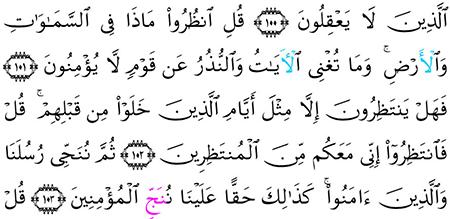 ٱلَّذِينَ لَا يَعۡقِلُونَ ١٠٠ قُلِ ٱنظُرُواْ مَاذَا فِي ٱلسَّمَٰوَٰتِ
وَٱلۡأَرۡضِۚ وَمَا تُغۡنِي ٱلۡأٓيَٰتُ وَٱلنُّذُرُ عَن قَوۡمٖ لَّا يُؤۡمِنُونَ ١٠١
فَهَلۡ يَنتَظِرُونَ إِلَّا مِثۡلَ أَيَّامِ ٱلَّذِينَ خَلَوۡاْ مِن قَبۡلِهِمۡۚ قُلۡ
فَٱنتَظِرُوٓاْ إِنِّي مَعَكُم مِّنَ ٱلۡمُنتَظِرِينَ ١٠٢ ثُمَّ نُنَجِّي رُسُلَنَا
وَٱلَّذِينَ ءَامَنُواْۚ كَذَٰلِكَ حَقًّا عَلَيۡنَا نُنَجِّ ٱلۡمُؤۡمِنِينَ ١٠٣ قُلۡ